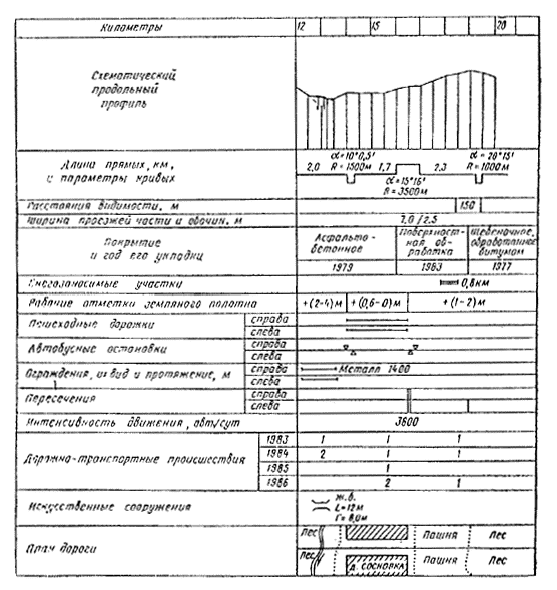 Километры 12 15 20
Схематический
продольный
профиль
Длина прямых, км,
и параметры кривых
α=10°0,5'
2,0 R=1500м 1,7 2,3 R=1000м
α=20°15'
α=15°16'
R=3500м
Расстояния видимости, м 150
Ширина проезжей части и обочин, м 7,0/2,5
Покрытие
и год его укладки
Асфальто-
бетонное
1979
Поверхност-
ная об-
работка
1983
Щебеночное,
обработанное
битумом
1977
Снегозаносимые участки 0,8км
Рабочие отметки земляного полотна +(2-4)м +(0,6-0)м +(1-2)м
Пешеходные дорожки справа
слева
Автобусные остановки справа
слева
Ограждения, их вид и протяжение, м справа Металл 1400
слева
Пересечения справа
слева
Интенсивность движения, авт/сут 3600
Дорожно-транспортные происшествия
1983 1 1 1
1984 2 1 1
1985 1
1986 2 1
Искусственные сооружения
Ж.Б.
L=12м
Г=8,0м
План дороги
Лес Пашня Лес
Лес д. СОСНОВКА Пашня Лес